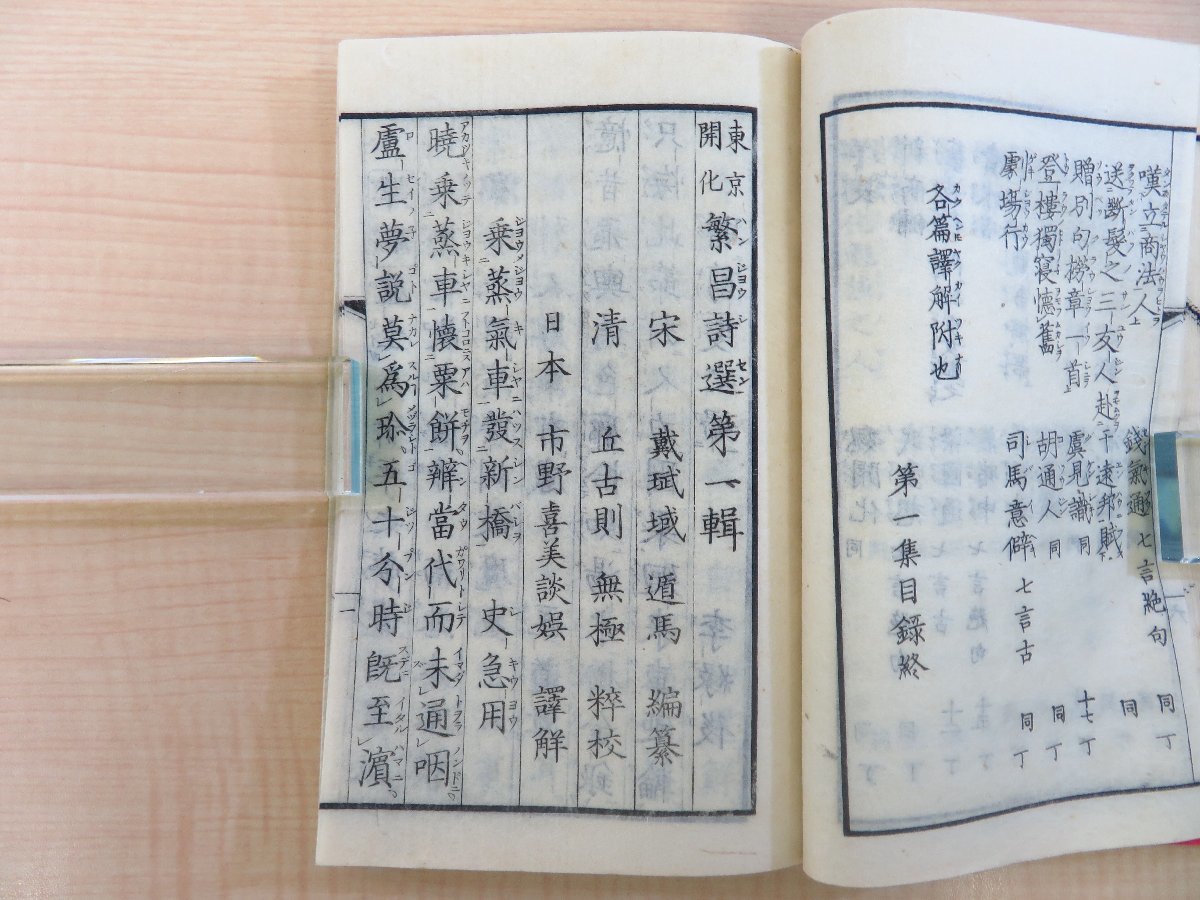 嘆立商法人 錢氣通 七言絶句 同丁
送斷髮之三友人赴千速邦賊 同 同丁
贈別句撈章一首 虞見識 同 十七丁
登樓獨寢憶舊 胡通人 同 同丁
劇塲行 司馬意僻 七言古 同丁
各篇譯解附也
第一集目録終
東京開化繁昌詩選第一輯
宋 戴珷珴 遁馬 編纂
清 丘古則 無極 粹校
日本 市野喜美談娯 譯解
乗蒸氣車發新橋 史急用
曉乗蒸車懷粟餅辨當代而未通咽
盧生夢説莫爲珎五十分時既至濵
一